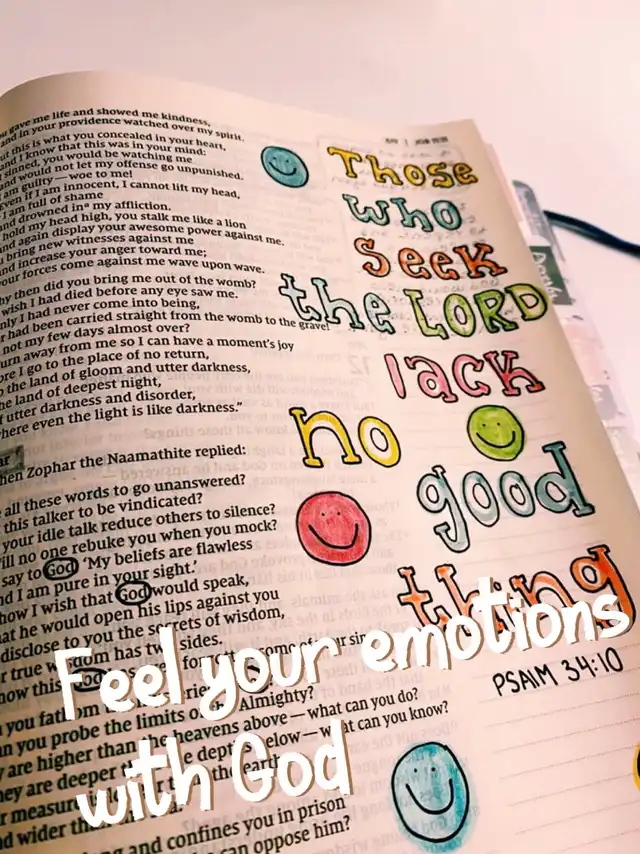 gave me life and showed me kindness,
and in your providence watched over my spirit.
this is what you concealed in your heart,
and I know that this was in your mind:
sinned, you would be watching me
and would not let my offense go unpunished.
guilty—woe to me!
Even if I am innocent, I cannot lift my head,
I am full of shame
and drowned in my affliction.
hold my head high, you stalk me like a lion
and again display your awesome power against me.
bring new witnesses against me
and increase your anger toward me;
your forces come against me wave upon wave.
then did you bring me out of the womb?
wish I had died before any eye saw me.
only I had never come into being,
had been carried straight from the womb to the grave!
not my few days almost over?
turn away from me so I can have a moment's joy
I go to the place of no return,
the land of gloom and utter darkness,
the land of deepest night,
utter darkness and disorder,
where even the light is like darkness.”
Then Zophar the Naamathite replied:
all these words to go unanswered?
this talker to be vindicated?
your idle talk reduce others to silence?
Will no one rebuke you when you mock?
say to God, ‘My beliefs are flawless
and I am pure in your sight.’
how I wish that God would speak,
that he would open his lips against you
disclose to you the secrets of wisdom,
true wisdom has two sides.
Know this
you fathom
you probe the limits of the Almighty?
are higher than the heavens above—what can you do?
They are deeper below—what can you know?
measure the earth
wider than
and confines you in prison
can oppose him?
Those
who
seek
the LORD
lack
no
good
thing
PSAlM 34:10
Feel your emotions
with God